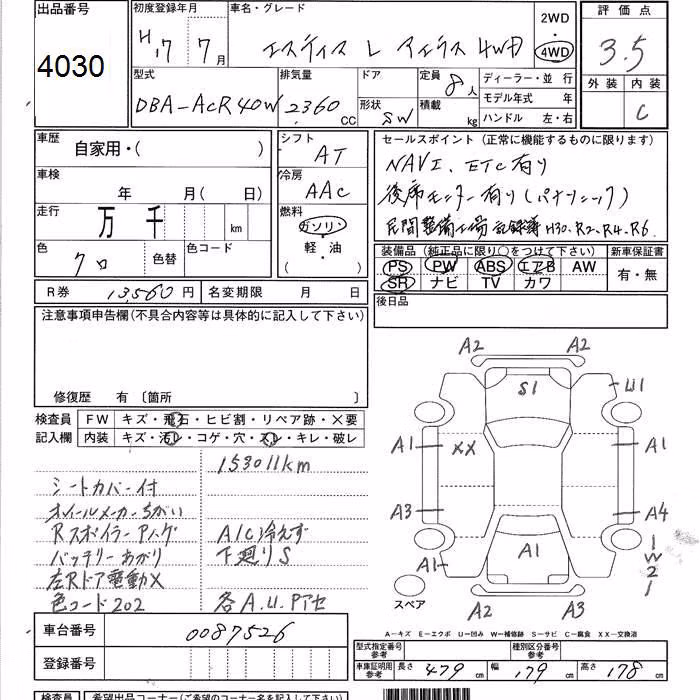 出品番号
4030
初度登録年月
H17 7月
車名・グレード
エスティマ L アエラス 4WD
2WD
・
4WD
評価点
3.5
外装 内装
C
型式
DBA-ACR40W
排気量
2360 CC
ドア
形状
SW
定員 8人
積載 kg
ディーラー・並 行
モデル年式 年
ハンドル 左・右
車歴
自家用・( )
車検
年 月( 日)
走行
万 千 km
色
クロ
色替
色コード
シフト
AT
冷房
AAC
燃料
ガソリン・
軽・油
( )
セールスポイント(正常に機能するものに限ります)
NAVI、ETC有り
後席モニター有り(パナソニック)
民間整備工場 記録簿 H30、R2、R4、R6
装備品(純正品に限り○をつけて下さい)
PS PW ABS エアB AW
SR ナビ TV カワ
新車保証書
有・無
R券 13,560円
名変期限 月 日
後日品
注意事項申告欄(不具合内容等は具体的に記入して下さい)
修復歴 有〔箇所 〕
検査員
記入欄
FW キズ・飛石・ヒビ割・リペア跡・×要
内装 キズ・汚レ・コゲ・穴・スレ・キレ・破レ
153011km
シートカバー付
ホイールメーカーちがい
Rスポイラーアハゲ
A/C冷えず
バッテリーあがり
下廻りS
左Rドア電動X
色コード202
各A.U.Pアセ
A2 A2
S1
U1
A1 XX A1
A3 A4
A1 A1 W2
スペア
A2 A3
A-キズ E-エクボ U-凹み W-補修跡 S-サビ C-腐食 XX-交換済
車台番号 0087526
登録番号
型式指定番号
参考
種別区分番号
参考
車庫証明用
参考
長さ 479 cm 幅 179 cm 高さ 178 cm
検査員 希望出品コーナー(ご希望のコーナー名を記入して下さい)